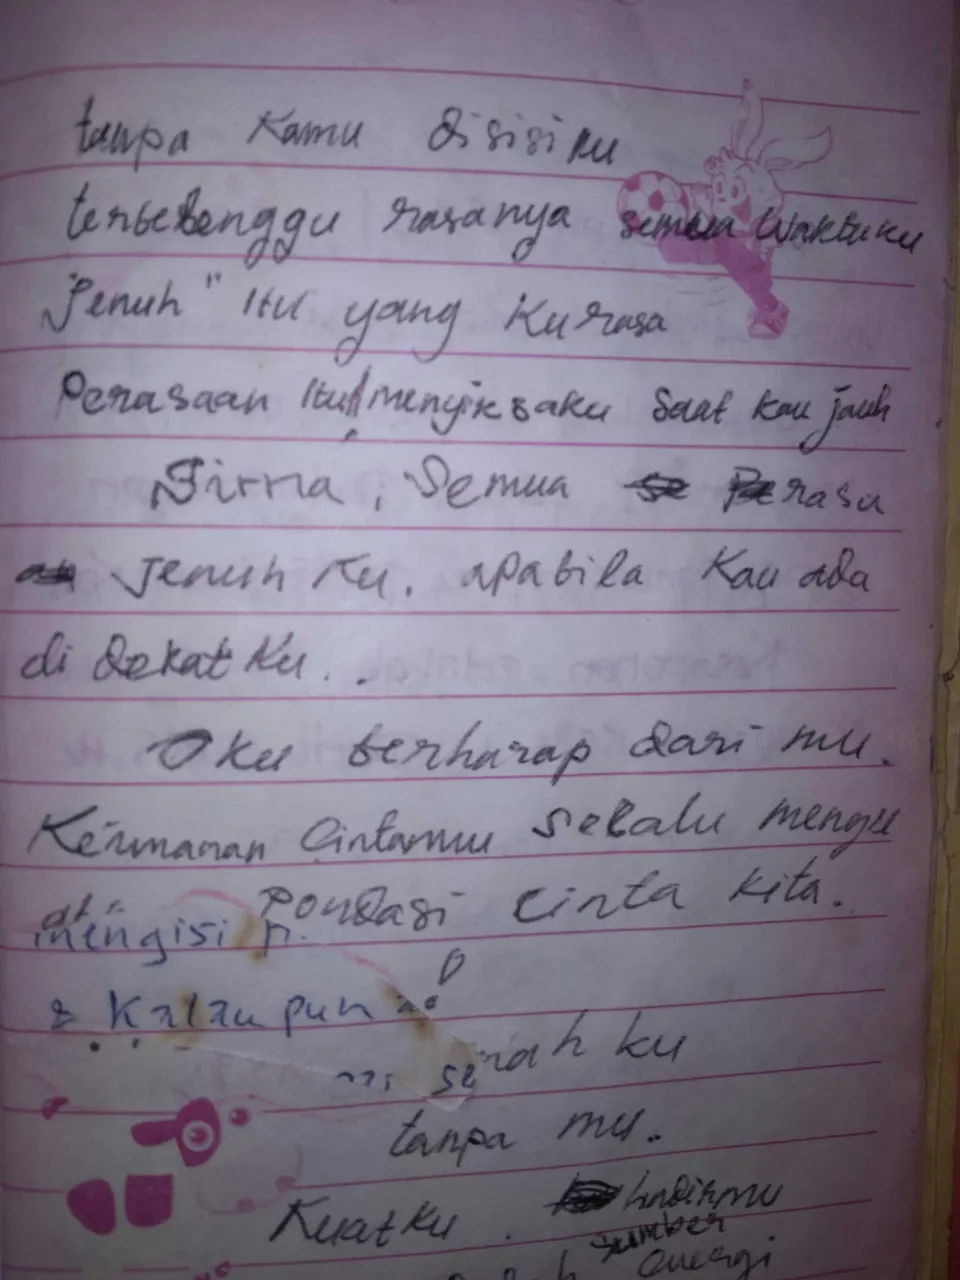 tanpa Kamu disisi ku
terbelenggu rasanya semua waktuku
"Jenuh" itu yang Ku rasa
Perasaan itu menyiksaku saat kau jauh
Sirna, Semua rasa
Jenuh Ku. apabila Kau ada
di dekat Ku..
Oku berharap dari mu.
cintamu selalu mengu
pondasi cinta kita.
mengisi
& Kalau pun
ku
tanpa mu..
Kuatku. hadirmu
sumber
energi